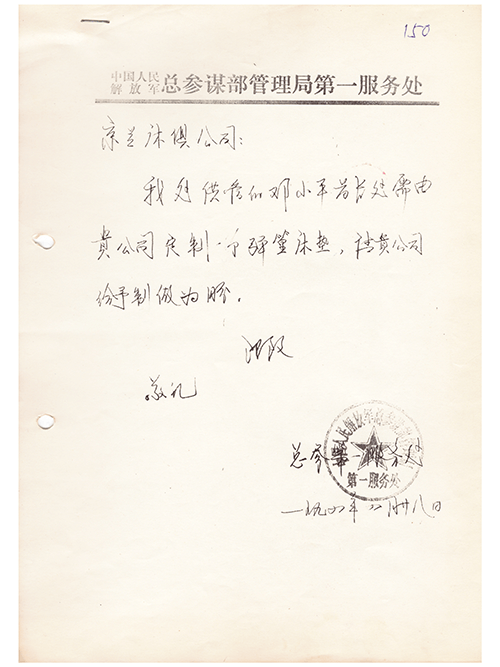 150
中国人民解放军 总参谋部管理局第一服务处
京兰床俱公司:
我处供给的邓小平首长处需由
贵公司定制一个弹簧床垫,请贵公司
给予制做为盼。
此致
敬礼
总参第一服务处
第一服务处
一九九二年 月廿八日